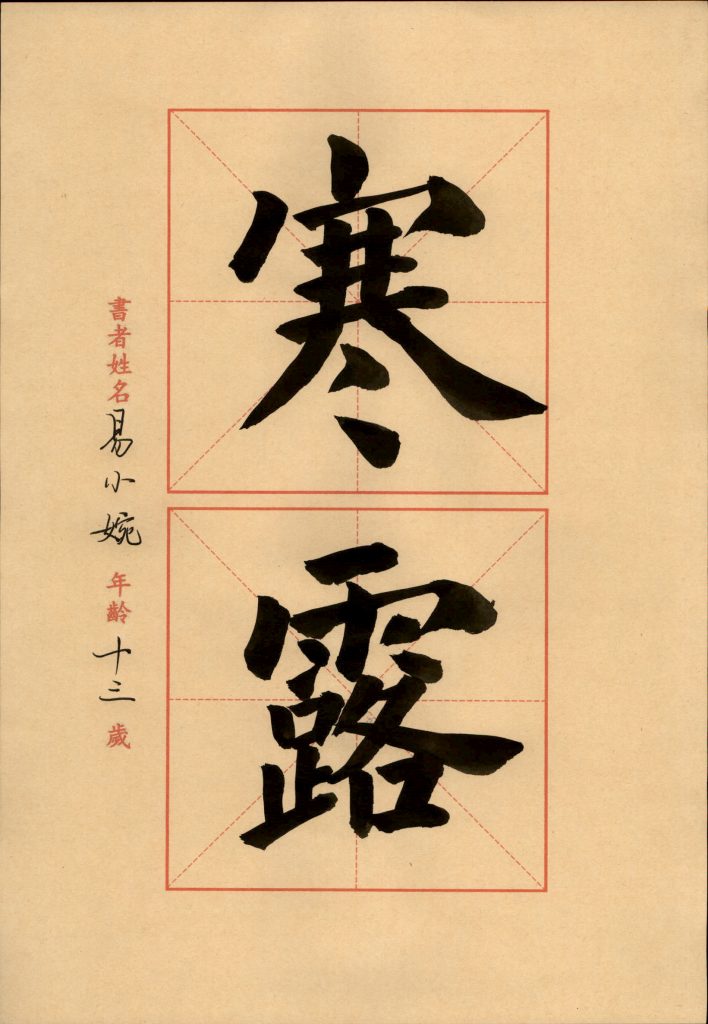 寒
露
書者姓名易小婉年齡十三歲